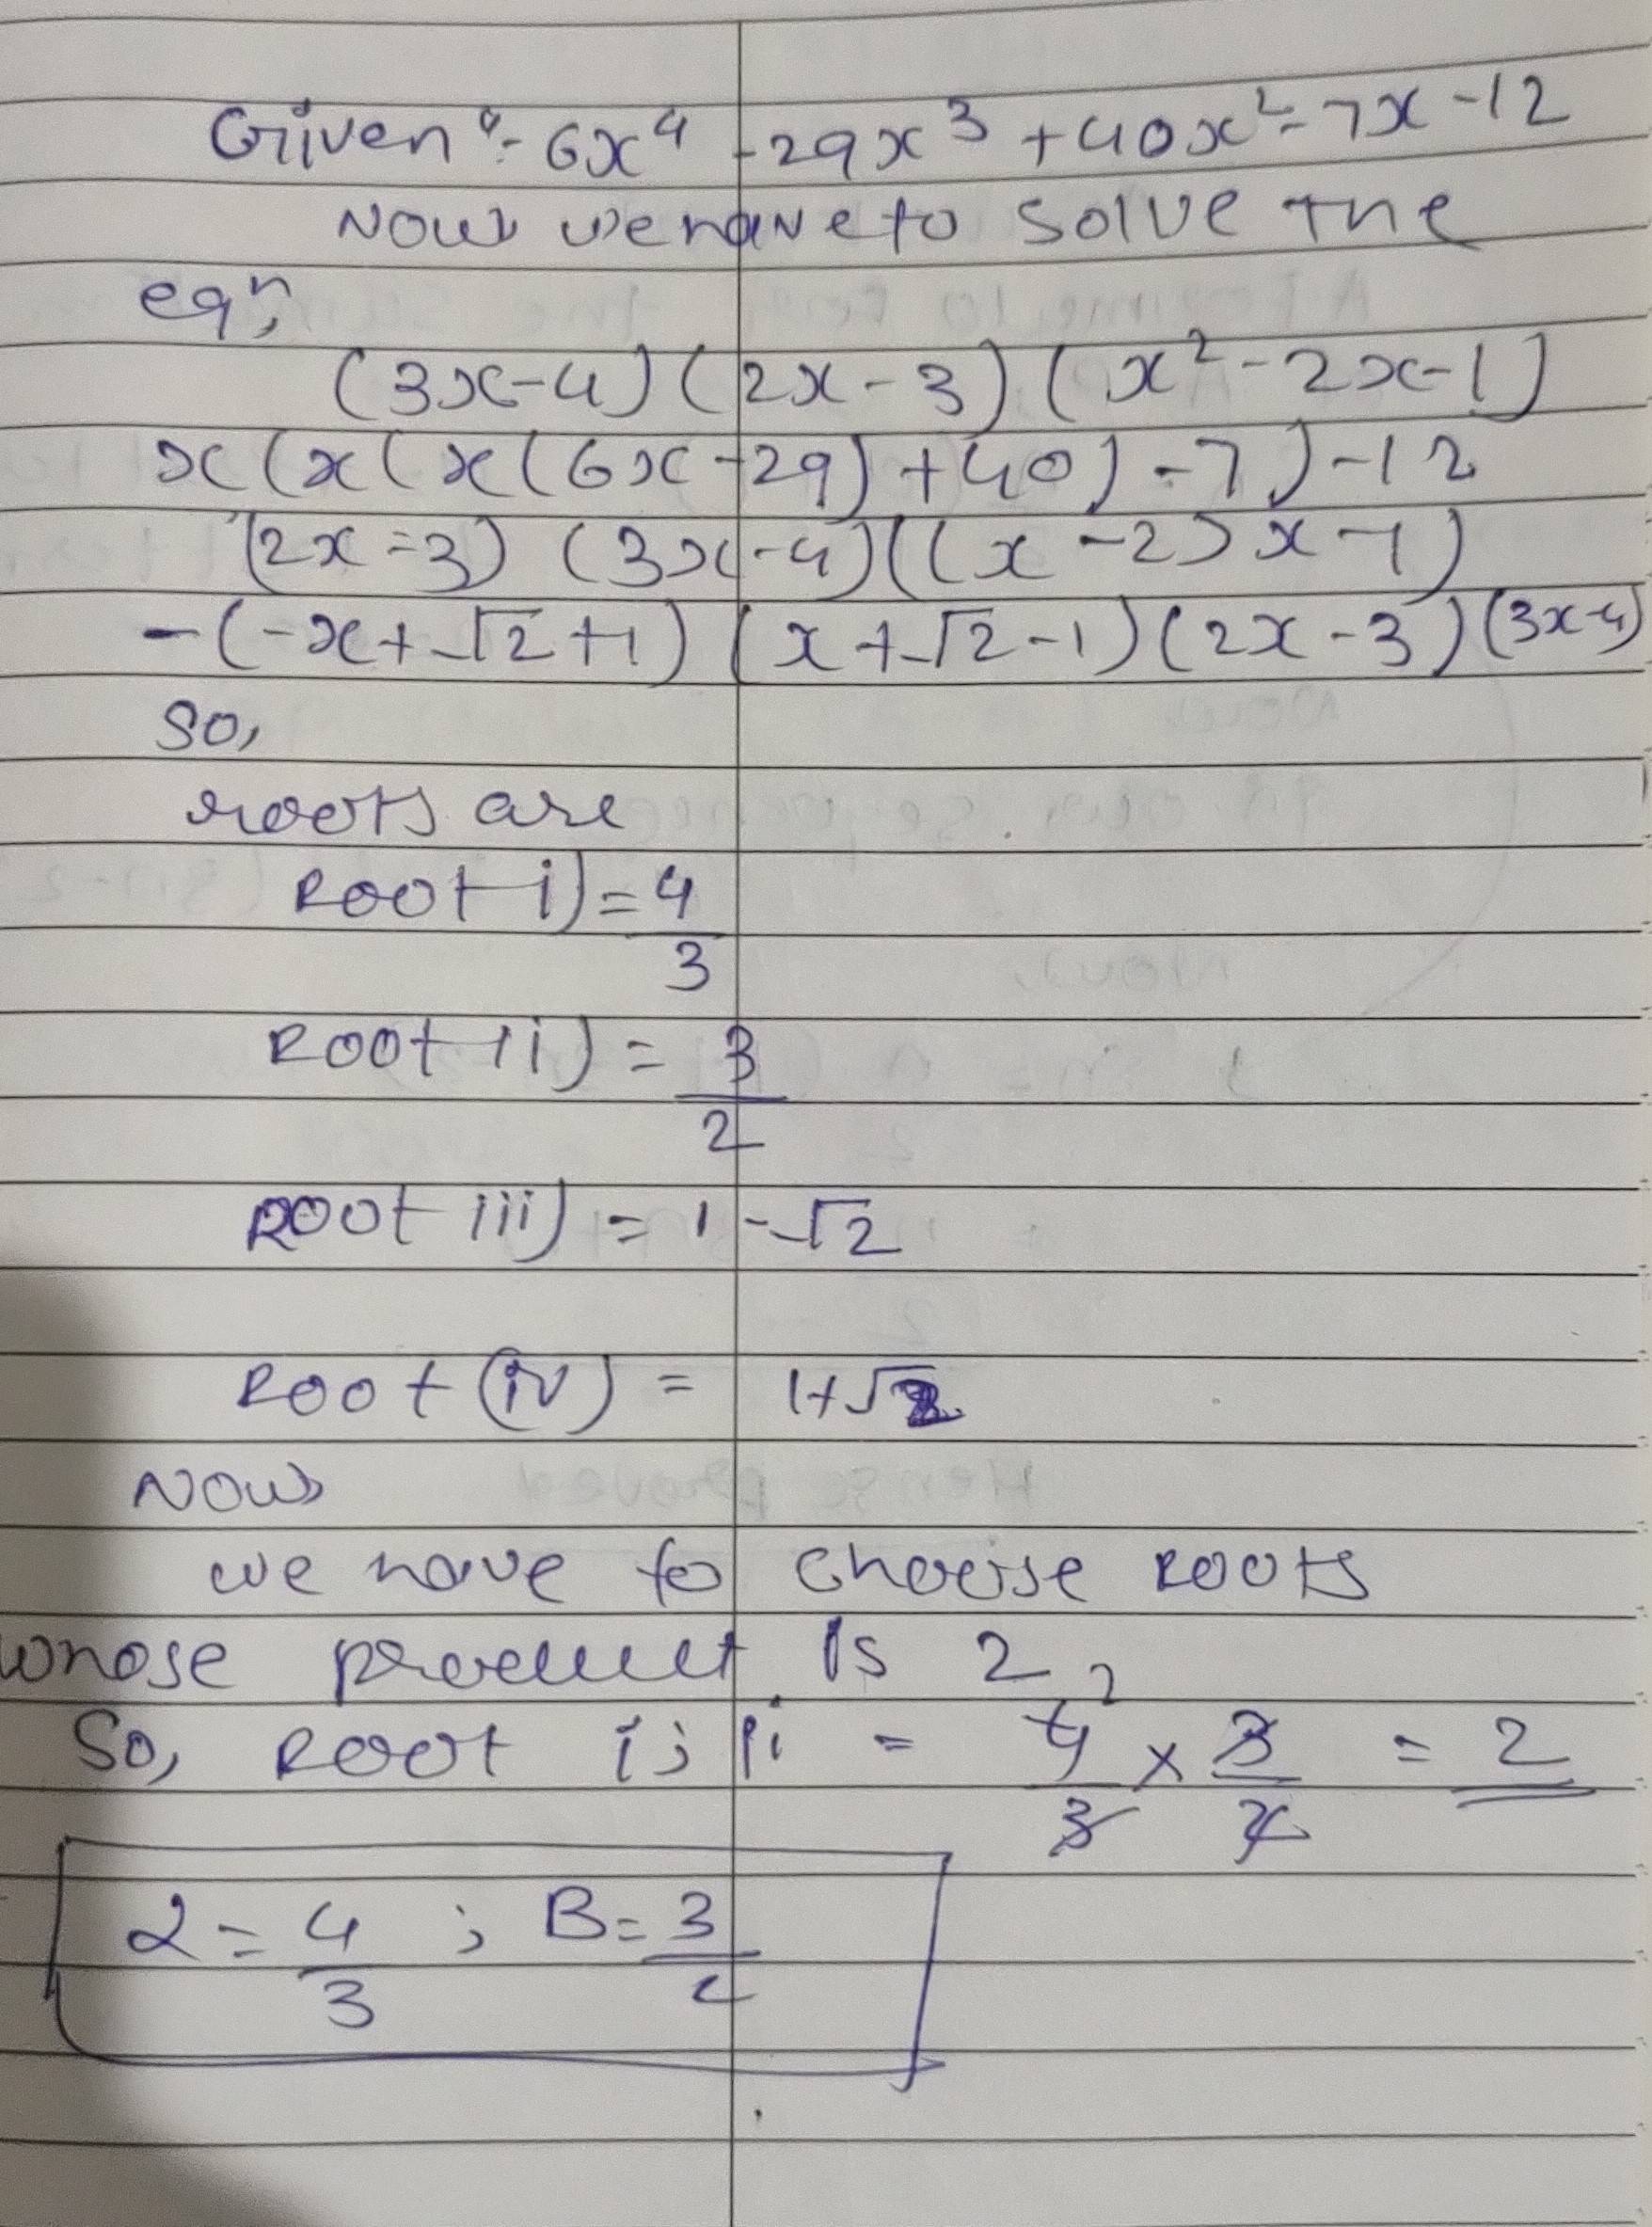 Given :- 6x⁴ -29x³ +40x² -7x -12
Now we have to solve the
eqⁿ,
(3x-4) (2x-3) (x²-2x-1)
x(x(x(6x-29)+40)-7)-12
(2x-3) (3x-4)((x-2)x-1)
-(-x+√2+1) (x+√2-1)(2x-3)(3x-4)
So,
roots are
Root i) = 4/3
Root ii) = 3/2
Root iii) = 1-√2
Root (iv) = 1+√2
Now
we have to choose roots
whose product is 2,
So, Root i; ii = 4/3 × 3/2 = 2
α = 4/3 ; B = 3/2